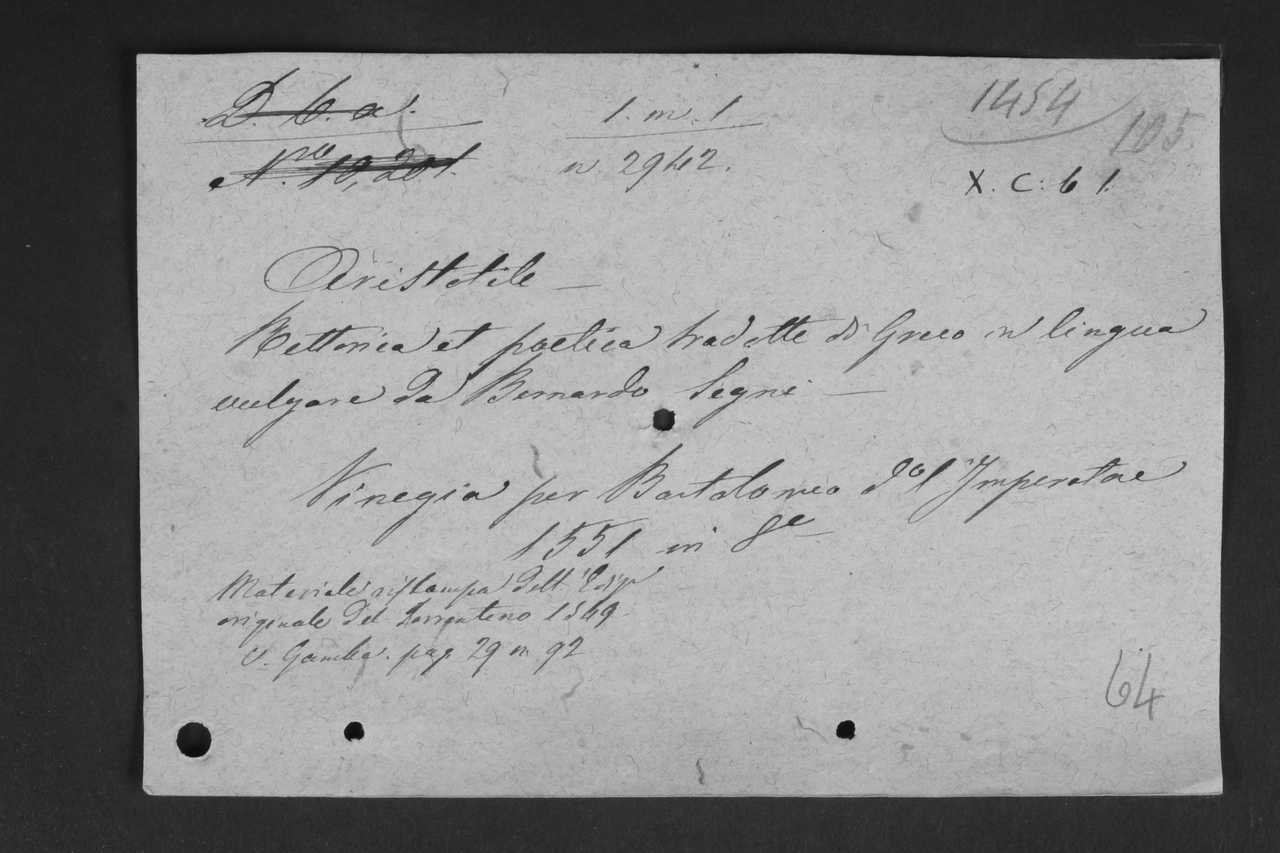 D. 6. a.
Nro 10,201.
1. m. 1
n 2942.
1454
105
X. C: 6 1.
Aristotile —
Rettorica et poetica tradotte di Greco in lingua
vulgare da Bernardo Segni —
Vinegia per Bartolomeo d'l Imperatore
1551 in 8e
Materiale ristampa dell'
originale del Torrentino 1549
V. Gamba. pag. 29 n 92
64